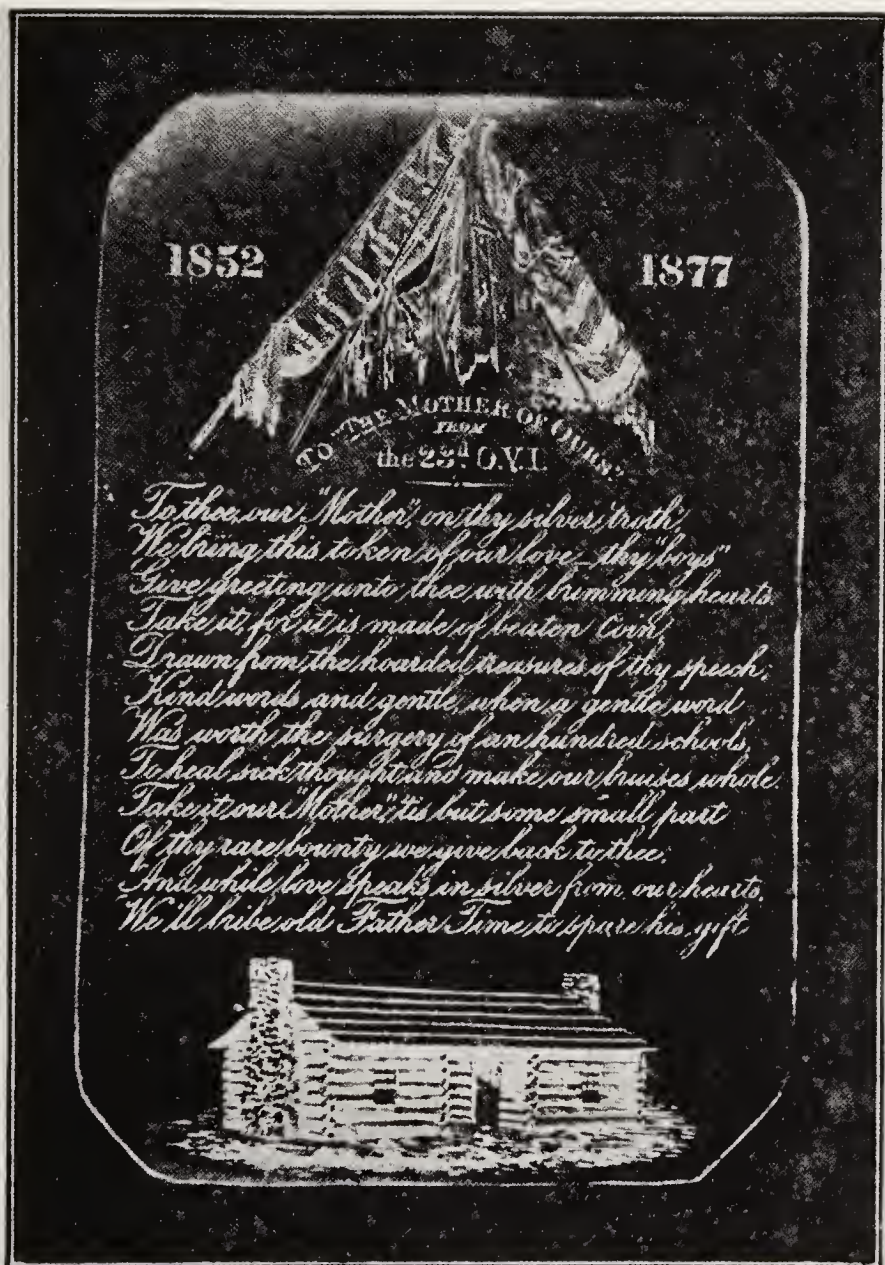 1852
1877
TO "THE MOTHER OF OURS."
FROM
the 23d. O.V.I.
To thee, our "Mother", on thy silver 'troth',
We bring this token of our love_ thy "boys"
Give greeting unto thee with brimming hearts.
Take it, for it is made of beaten coin,
Drawn from the hoarded treasures of thy speech;
Kind words and gentle, when a gentle word
Was worth the surgery of an hundred schools,
To heal sick thought and make our bruises whole.
Take it, our "Mother", 'tis but some small part
Of thy rare bounty we give back to thee;
And while love speaks in silver from our hearts,
We'll bribe old Father Time to spare his gift